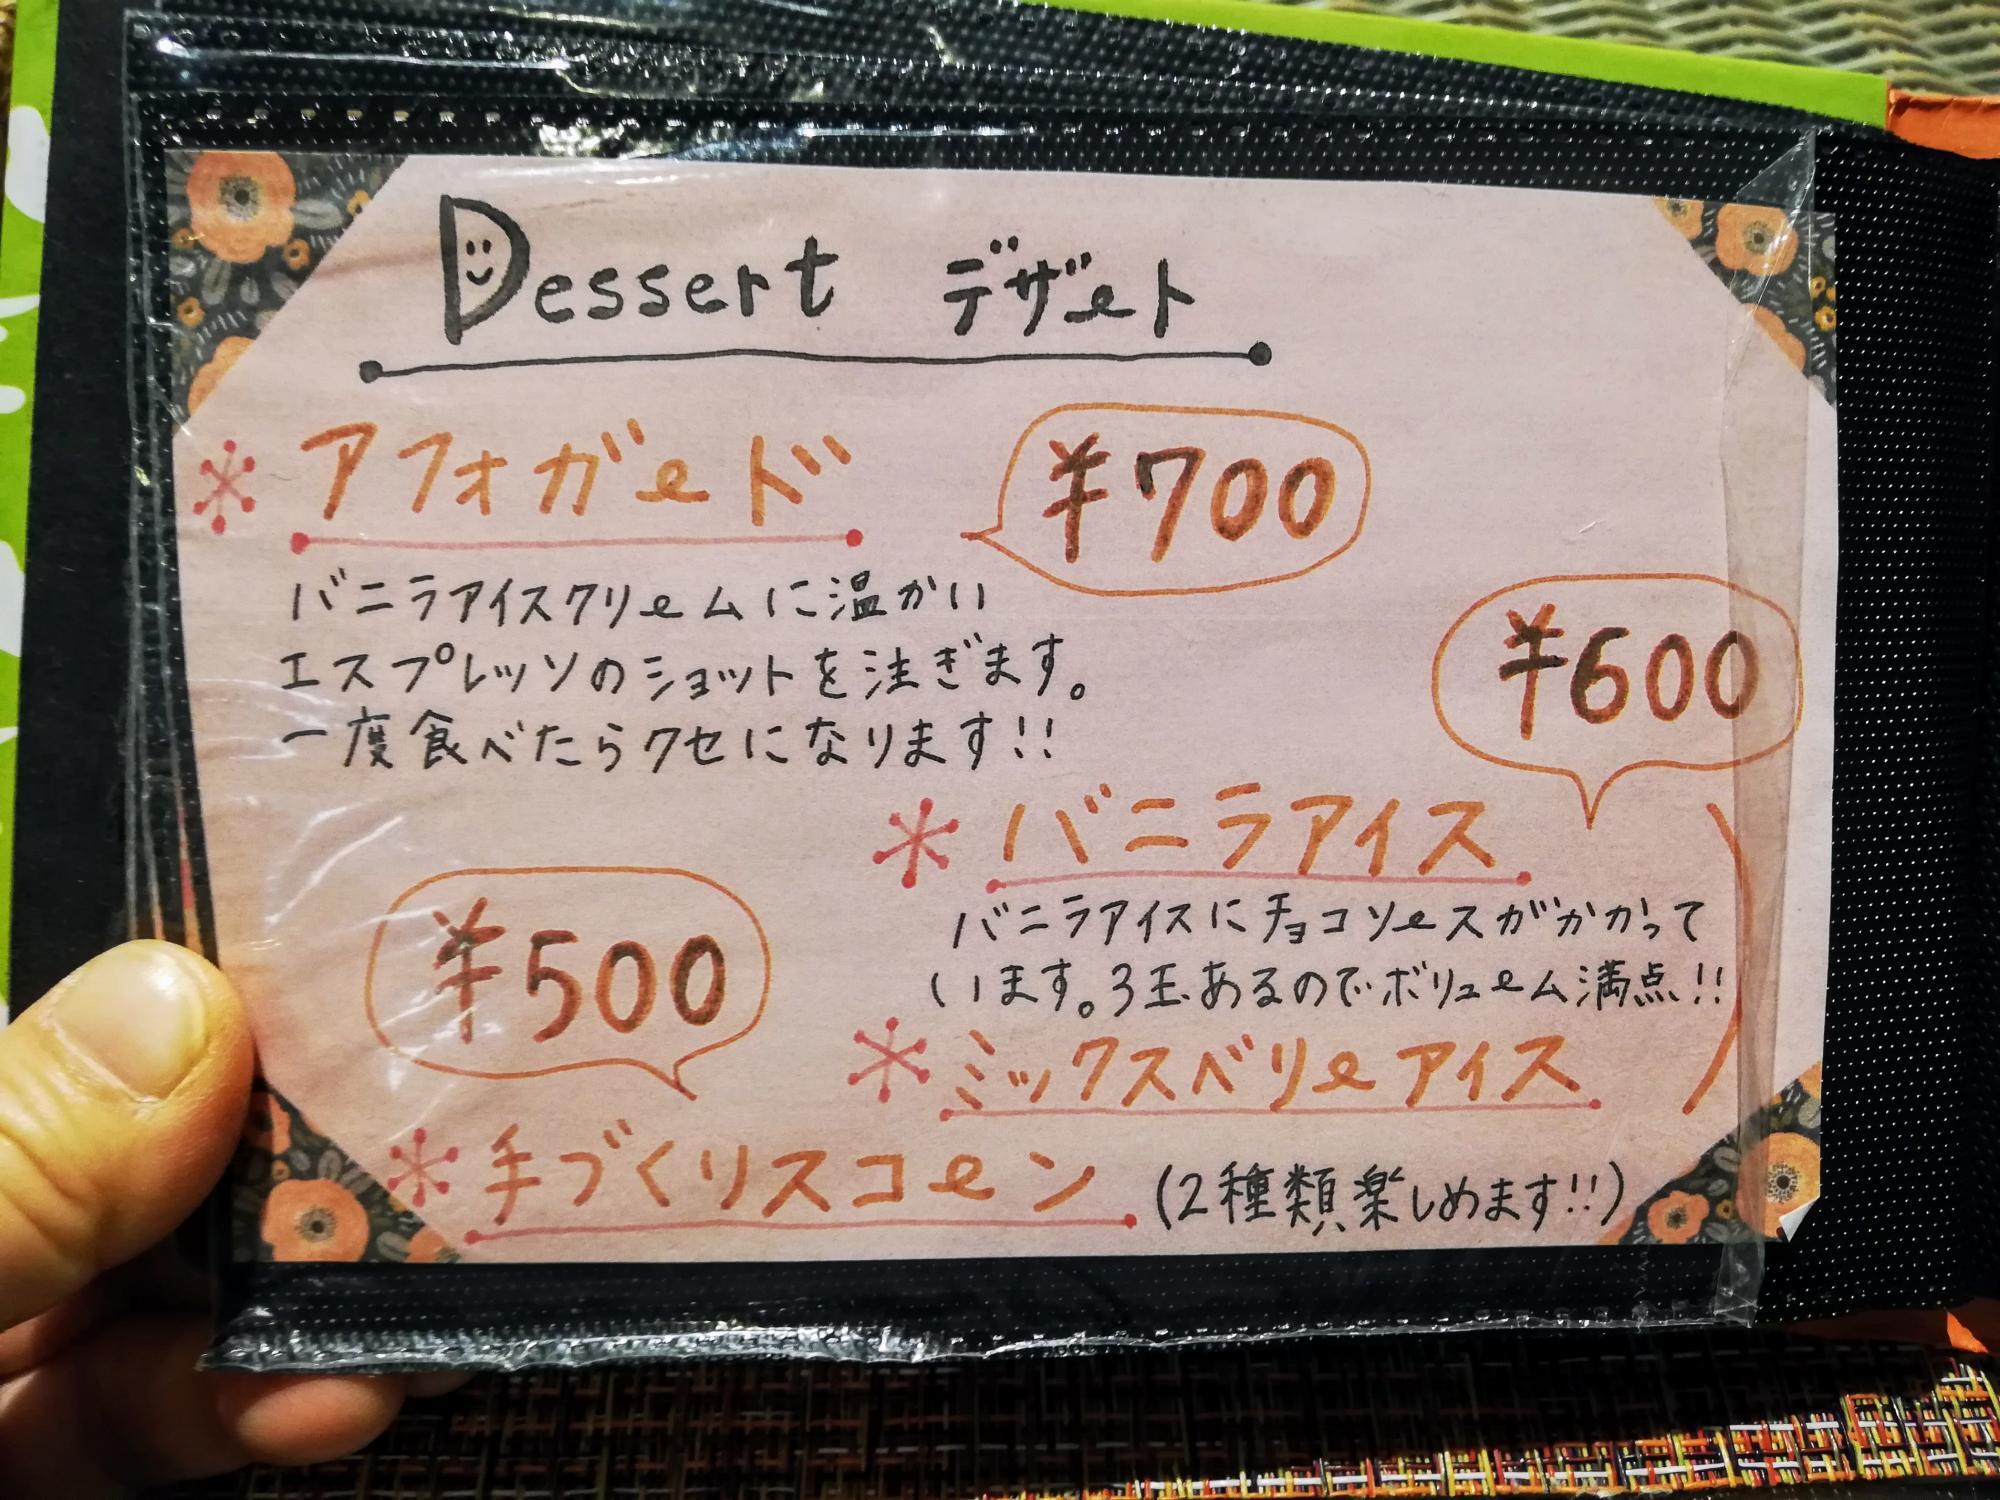 Dessert デザート
*アフォガード ¥700
バニラアイスクリームに温かい
エスプレッソのショットを注ぎます。
一度食べたらクセになります!!
¥600
*バニラアイス
バニラアイスにチョコソースがかかって
います。3玉あるのでボリューム満点!!
*ミックスベリーアイス
¥500
*手づくりスコーン (2種類楽しめます!!)